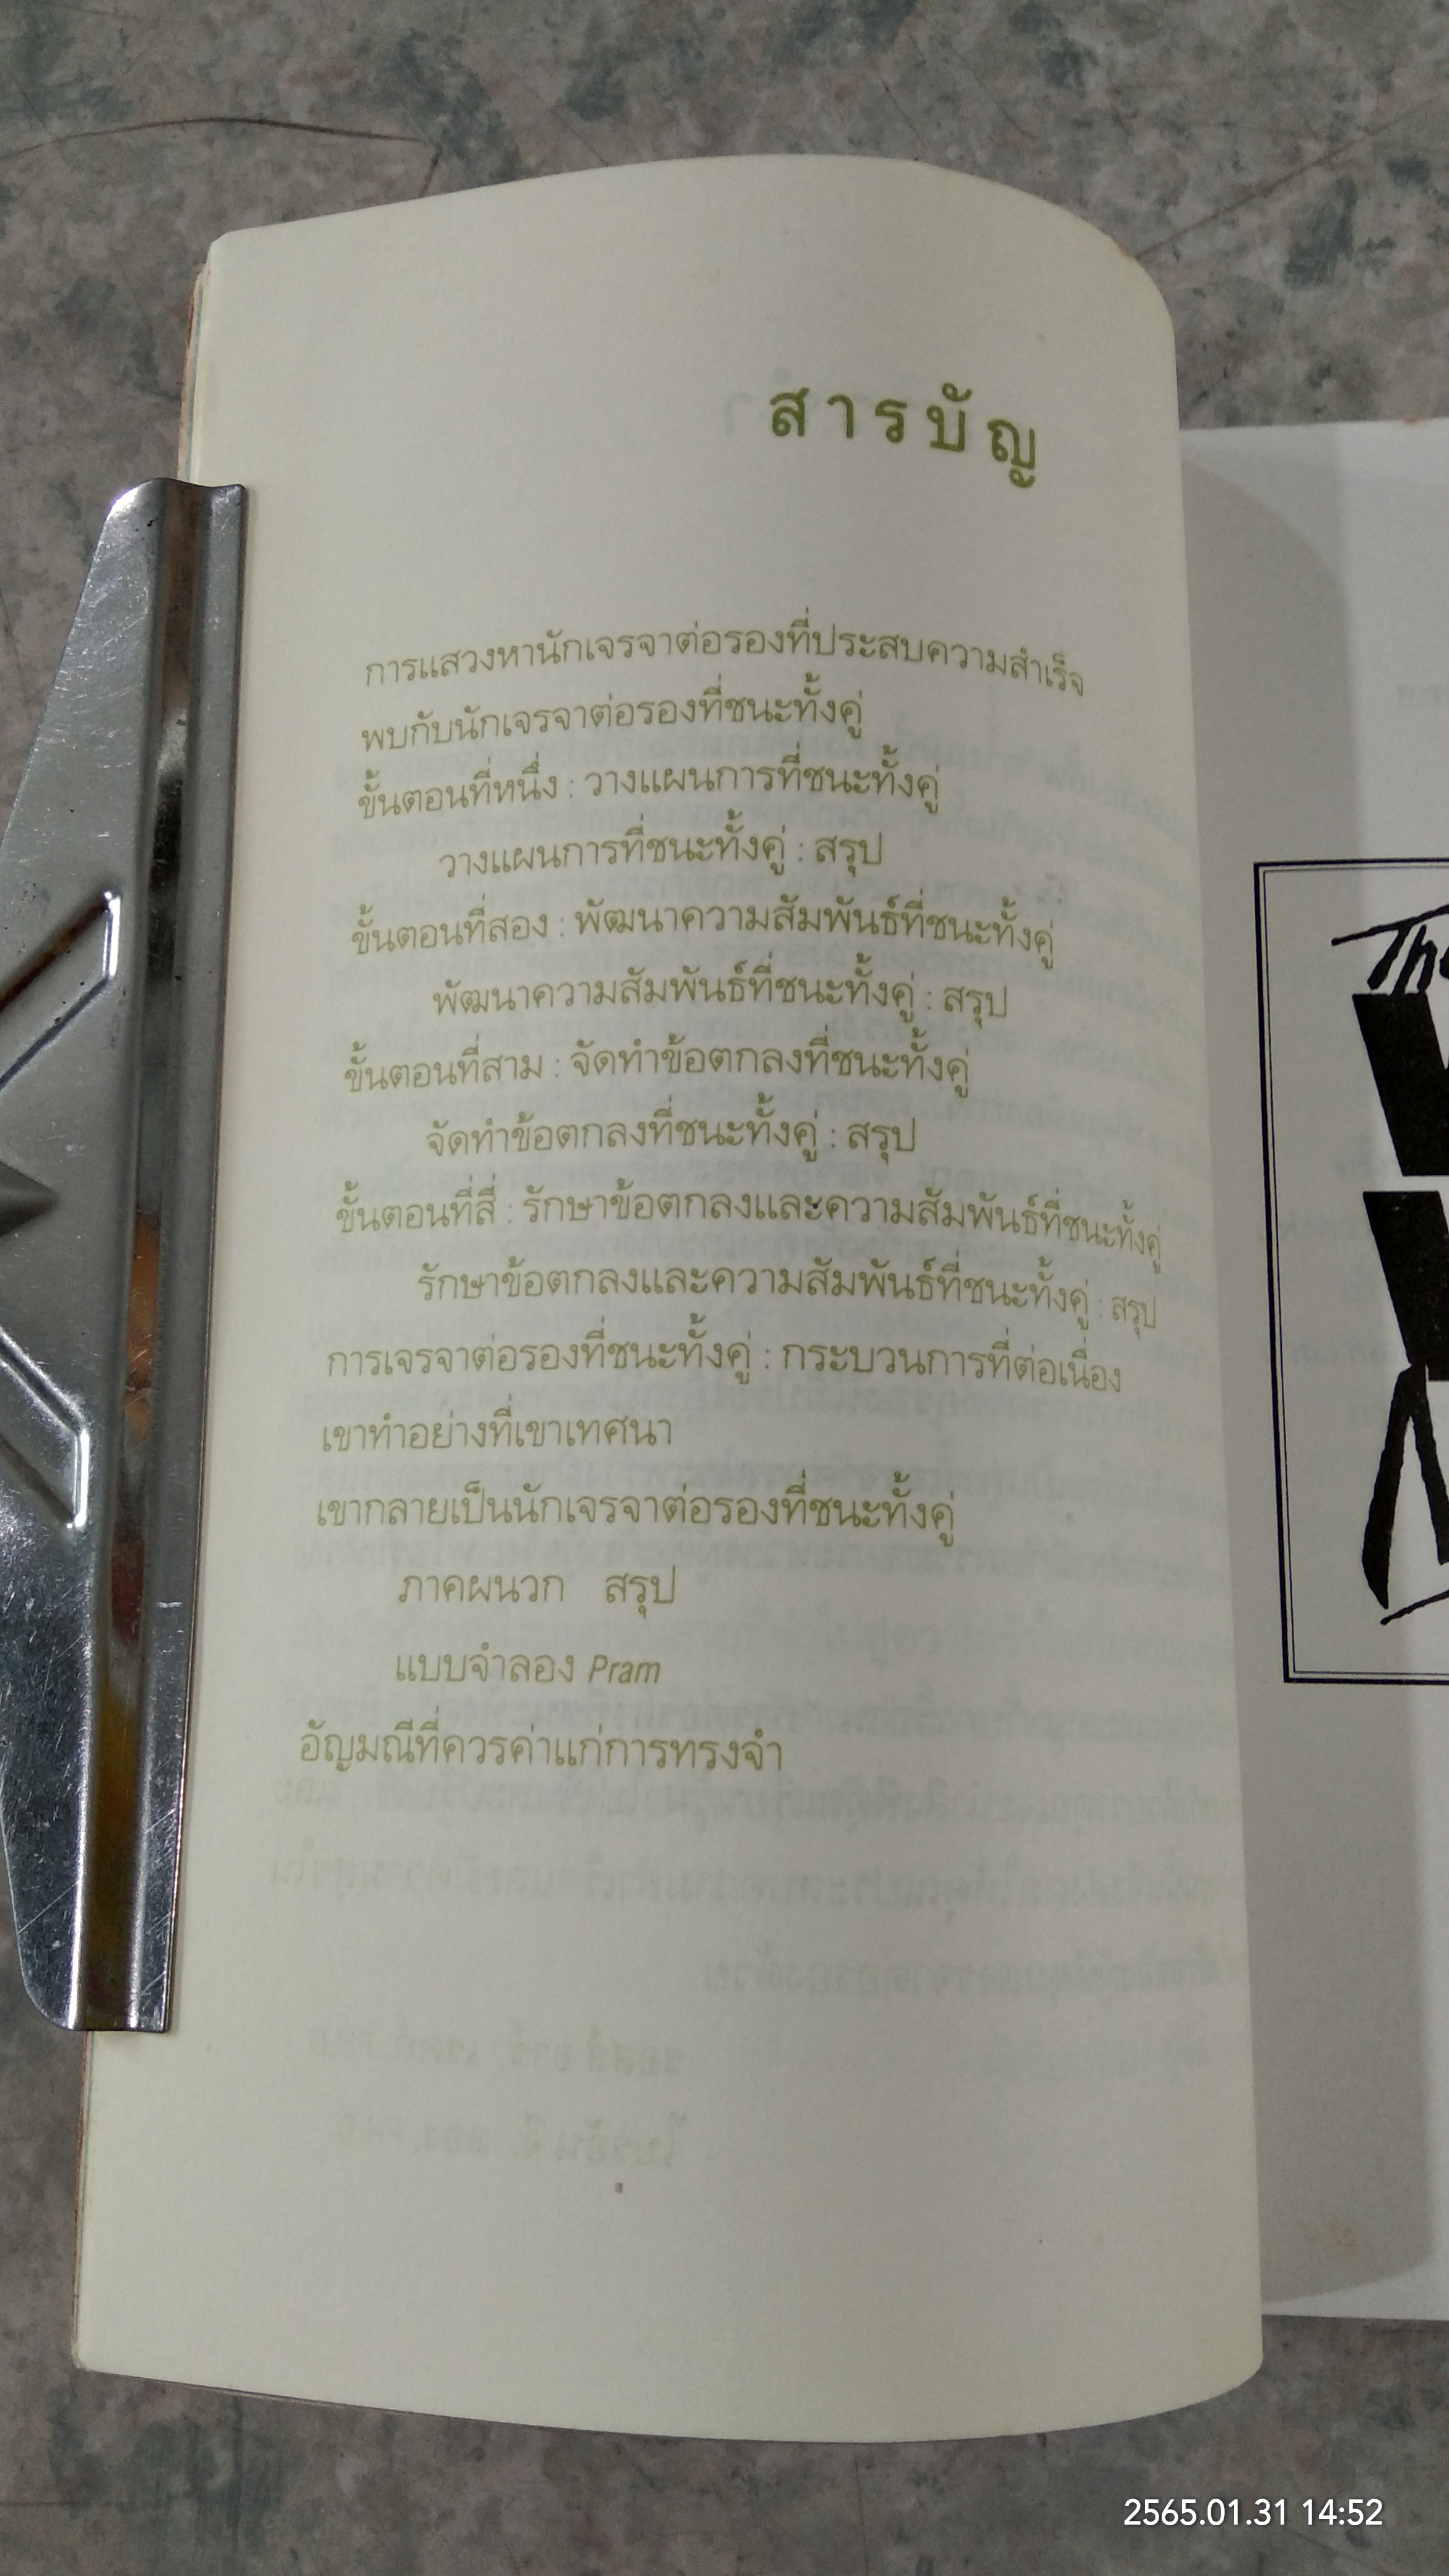 สารบัญ
การแสวงหานักเจรจาต่อรองที่ประสบความสำเร็จ
พบกับนักเจรจาต่อรองที่ชนะทั้งคู่
ขั้นตอนที่หนึ่ง : วางแผนการที่ชนะทั้งคู่
วางแผนการที่ชนะทั้งคู่ : สรุป
ขั้นตอนที่สอง : พัฒนาความสัมพันธ์ที่ชนะทั้งคู่
พัฒนาความสัมพันธ์ที่ชนะทั้งคู่ : สรุป
ขั้นตอนที่สาม : จัดทำข้อตกลงที่ชนะทั้งคู่
จัดทำข้อตกลงที่ชนะทั้งคู่ : สรุป
ขั้นตอนที่สี่ : รักษาข้อตกลงและความสัมพันธ์ที่ชนะทั้งคู่
รักษาข้อตกลงและความสัมพันธ์ที่ชนะทั้งคู่ : สรุป
การเจรจาต่อรองที่ชนะทั้งคู่ : กระบวนการที่ต่อเนื่อง
เขาทำอย่างที่เขาเทศนา
เขากลายเป็นนักเจรจาต่อรองที่ชนะทั้งคู่
ภาคผนวก สรุป
แบบจำลอง Pram
อัญมณีที่ควรค่าแก่การทรงจำ
2565.01.31 14:52